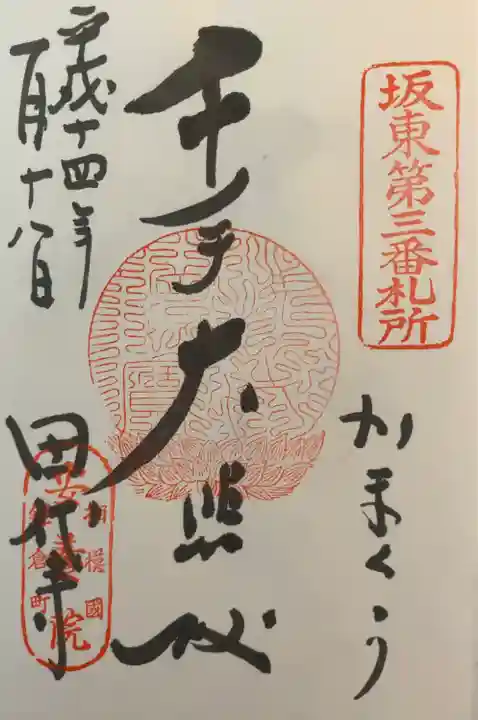 坂東第三番札所
かまくら
千手大悲
平成十四年
一月十八日
田代寺
相模國
安養院
鎌倉町